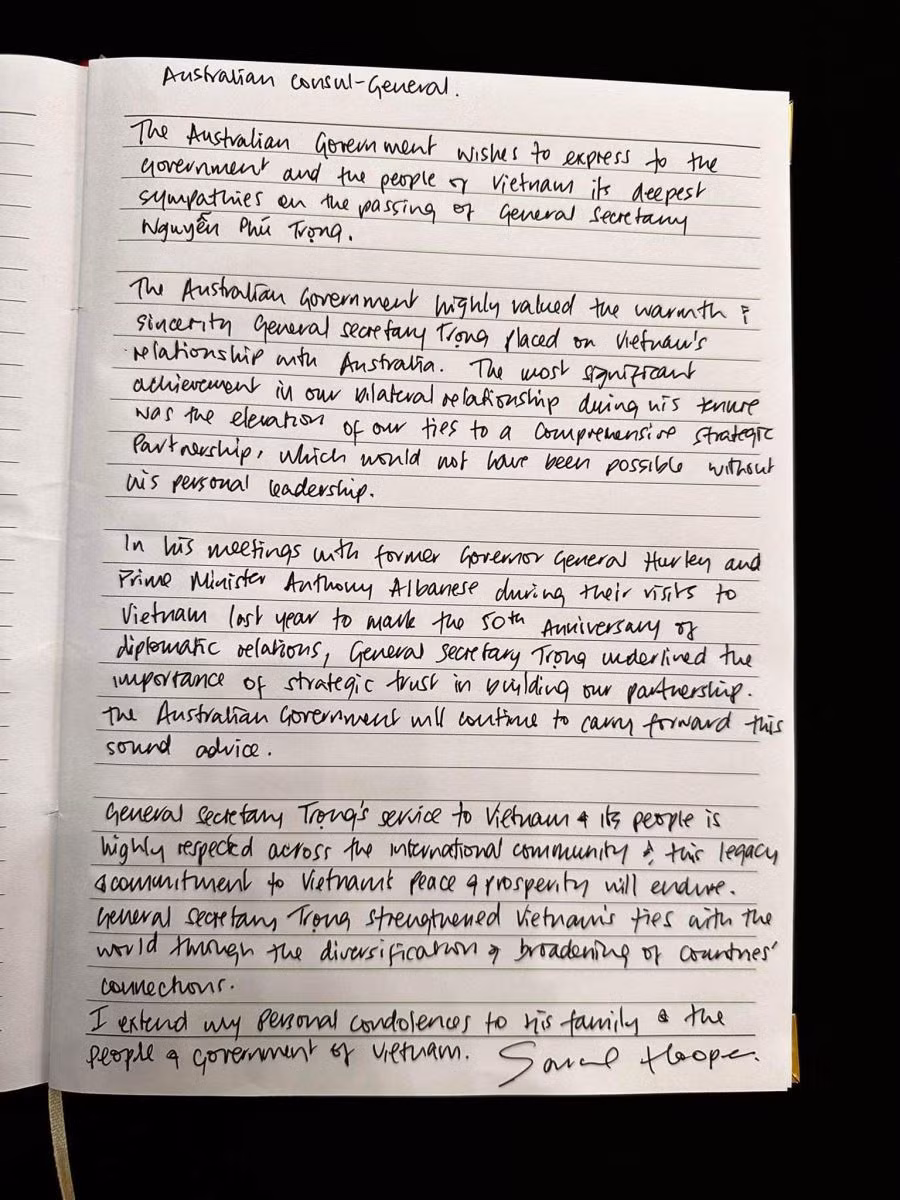 Australian Consul-General.
The Australian Government wishes to express to the
Government and the people of Vietnam its deepest
sympathies on the passing of General Secretary
Nguyễn Phú Trọng.
The Australian Government highly valued the warmth &
sincerity General secretary Trọng placed on Vietnam's
relationship with Australia. The most significant
achievement in our bilateral relationship during his tenure
was the elevation of our ties to a Comprehensive Strategic
Partnership, which would not have been possible without
his personal leadership.
In his meetings with former Governor General Hurley and
Prime Minister Anthony Albanese during their visits to
Vietnam last year to mark the 50th Anniversary of
diplomatic relations, General Secretary Trọng underlined the
importance of strategic trust in building our partnership.
The Australian Government will continue to carry forward this
sound advice.
General Secretary Trọng's service to Vietnam & its people is
highly respected across the international community & this legacy
& commitment to Vietnam's peace & prosperity will endure.
General Secretary Trọng strengthened Vietnam's ties with the
world through the diversification & broadening of countries'
connections.
I extend my personal condolences to his family & the
people & Government of Vietnam. Sarah Hooper.